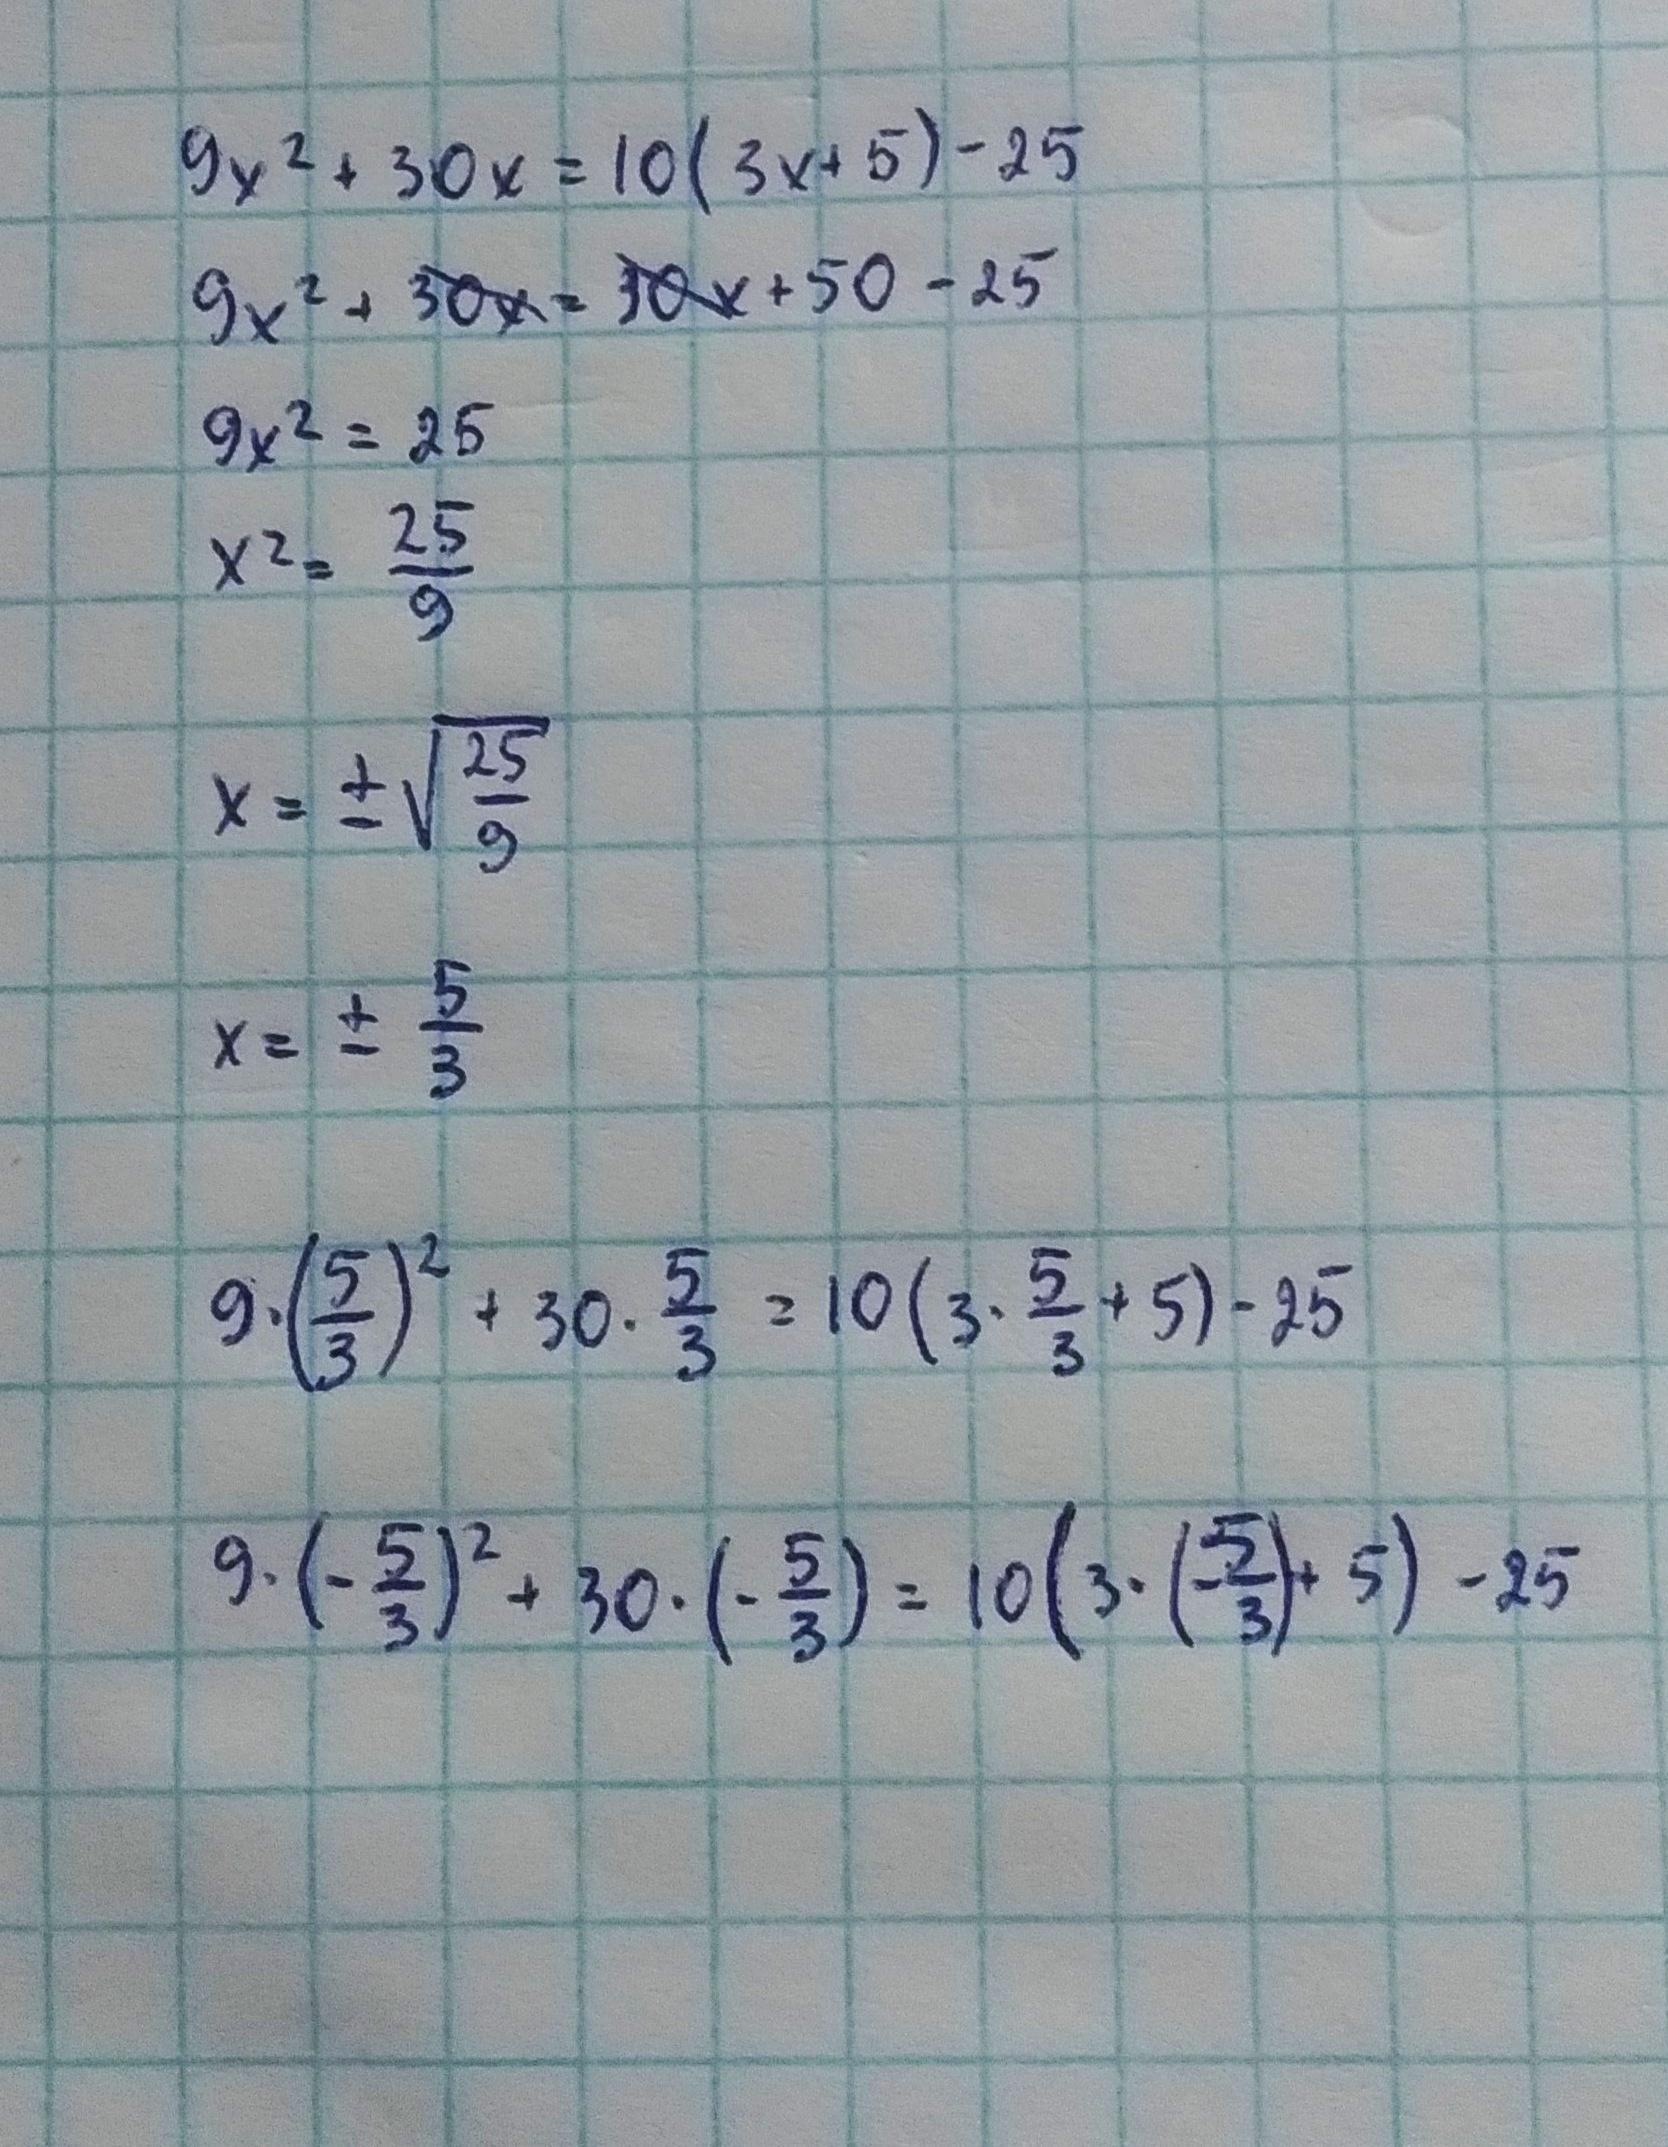 9x² + 30x = 10(3x+5) - 25
9x² + 30x = 30x + 50 - 25
9x² = 25
x² = 25/9
x = ± √(25/9)
x = ± 5/3
9·(5/3)² + 30·5/3 = 10(3·5/3 + 5) - 25
9·(-5/3)² + 30·(-5/3) = 10(3·(-5/3) + 5) - 25